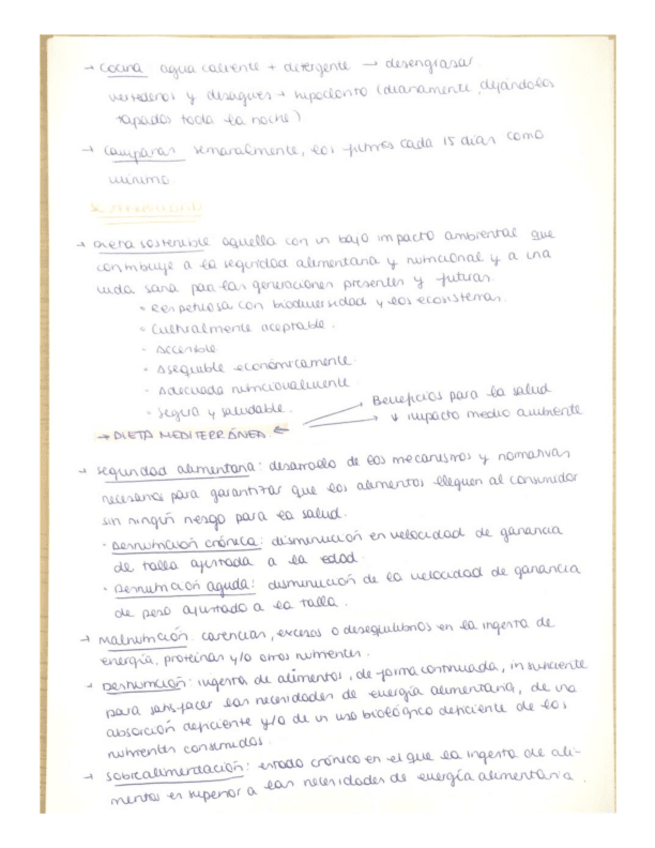 → cocina: agua caliente + detergente → desengrasar.
vertederos y desagües → hipoclorito (diariamente, dejándolos
tapados toda la noche)
→ campanas semanalmente, los filtros cada 15 días como
mínimo
SOSTENIBILIDAD
→ Dieta sostenible aquella con un bajo impacto ambiental que
contribuye a la seguridad alimentaria y nutricional y a una
vida sana para las generaciones presentes y futuras.
• Respetuosa con biodiversidad y los ecosistemas.
• Culturalmente aceptable.
- Accesible
- Asequible económicamente.
- Adecuada nutricionalmente
• Segura y saludable.
Beneficios para la salud
↓ impacto medio ambiente
→ DIETA MEDITERRÁNEA ←
→ seguridad alimentaria: desarrollo de los mecanismos y normativas
necesarios para garantizar que los alimentos lleguen al consumidor
sin ningún riesgo para la salud.
· Desnutrición crónica: disminución en velocidad de ganancia
de talla ajustada a la edad.
· Desnutrición aguda: disminución de la velocidad de ganancia
de peso ajustado a la talla.
→ Malnutrición: carencias, excesos o desequilibrios en la ingesta de
energía, proteínas y/o otros nutrientes.
→ Desnutrición: ingesta de alimentos, de forma continuada, insuficiente
para satisfacer las necesidades de energía alimentaria, de una
absorción deficiente y/o de un uso biológico deficiente de los
nutrientes consumidos.
→ sobrealimentación: estado crónico en el que la ingesta de ali-
mentos es superior a las necesidades de energía alimentaria.